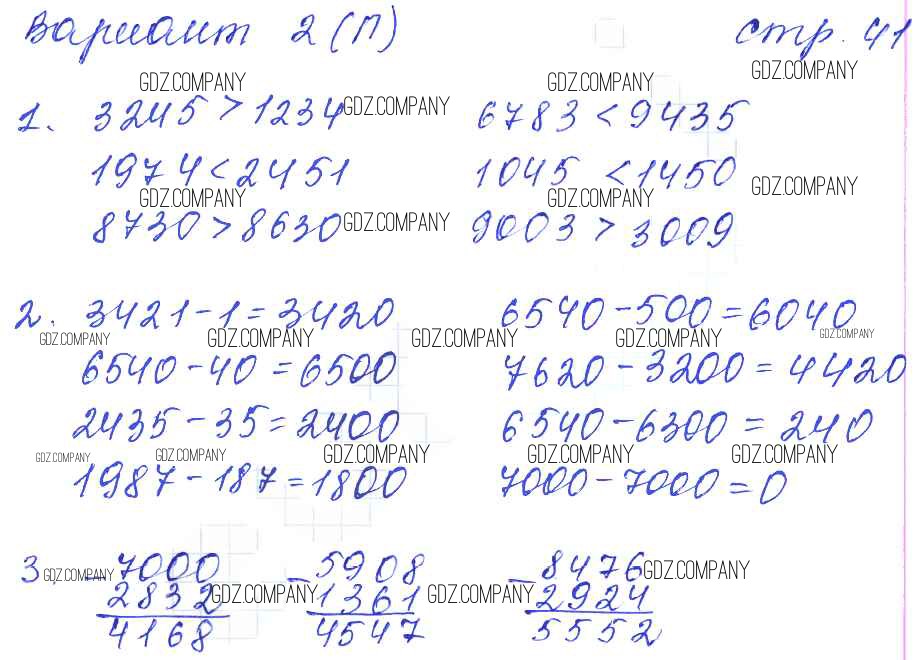 Вариант 2 (П) стр. 41
GDZ.COMPANY GDZ.COMPANY GDZ.COMPANY
1. 3245 > 1234 GDZ.COMPANY 6783 < 9435
1974 < 2451 1045 < 1450 GDZ.COMPANY
GDZ.COMPANY GDZ.COMPANY
8730 > 8630 GDZ.COMPANY 9003 > 3009
2. 3421 - 1 = 3420 6540 - 500 = 6040
GDZ.COMPANY GDZ.COMPANY GDZ.COMPANY GDZ.COMPANY GDZ.COMPANY
6540 - 40 = 6500 7620 - 3200 = 4420
2435 - 35 = 2400 6540 - 6300 = 240
GDZ.COMPANY GDZ.COMPANY GDZ.COMPANY GDZ.COMPANY GDZ.COMPANY
1987 - 187 = 1800 7000 - 7000 = 0
3 GDZ.COMPANY - 7000 - 5908 - 8476 GDZ.COMPANY
2832 GDZ.COMPANY 1361 GDZ.COMPANY 2924
4168 4547 5552